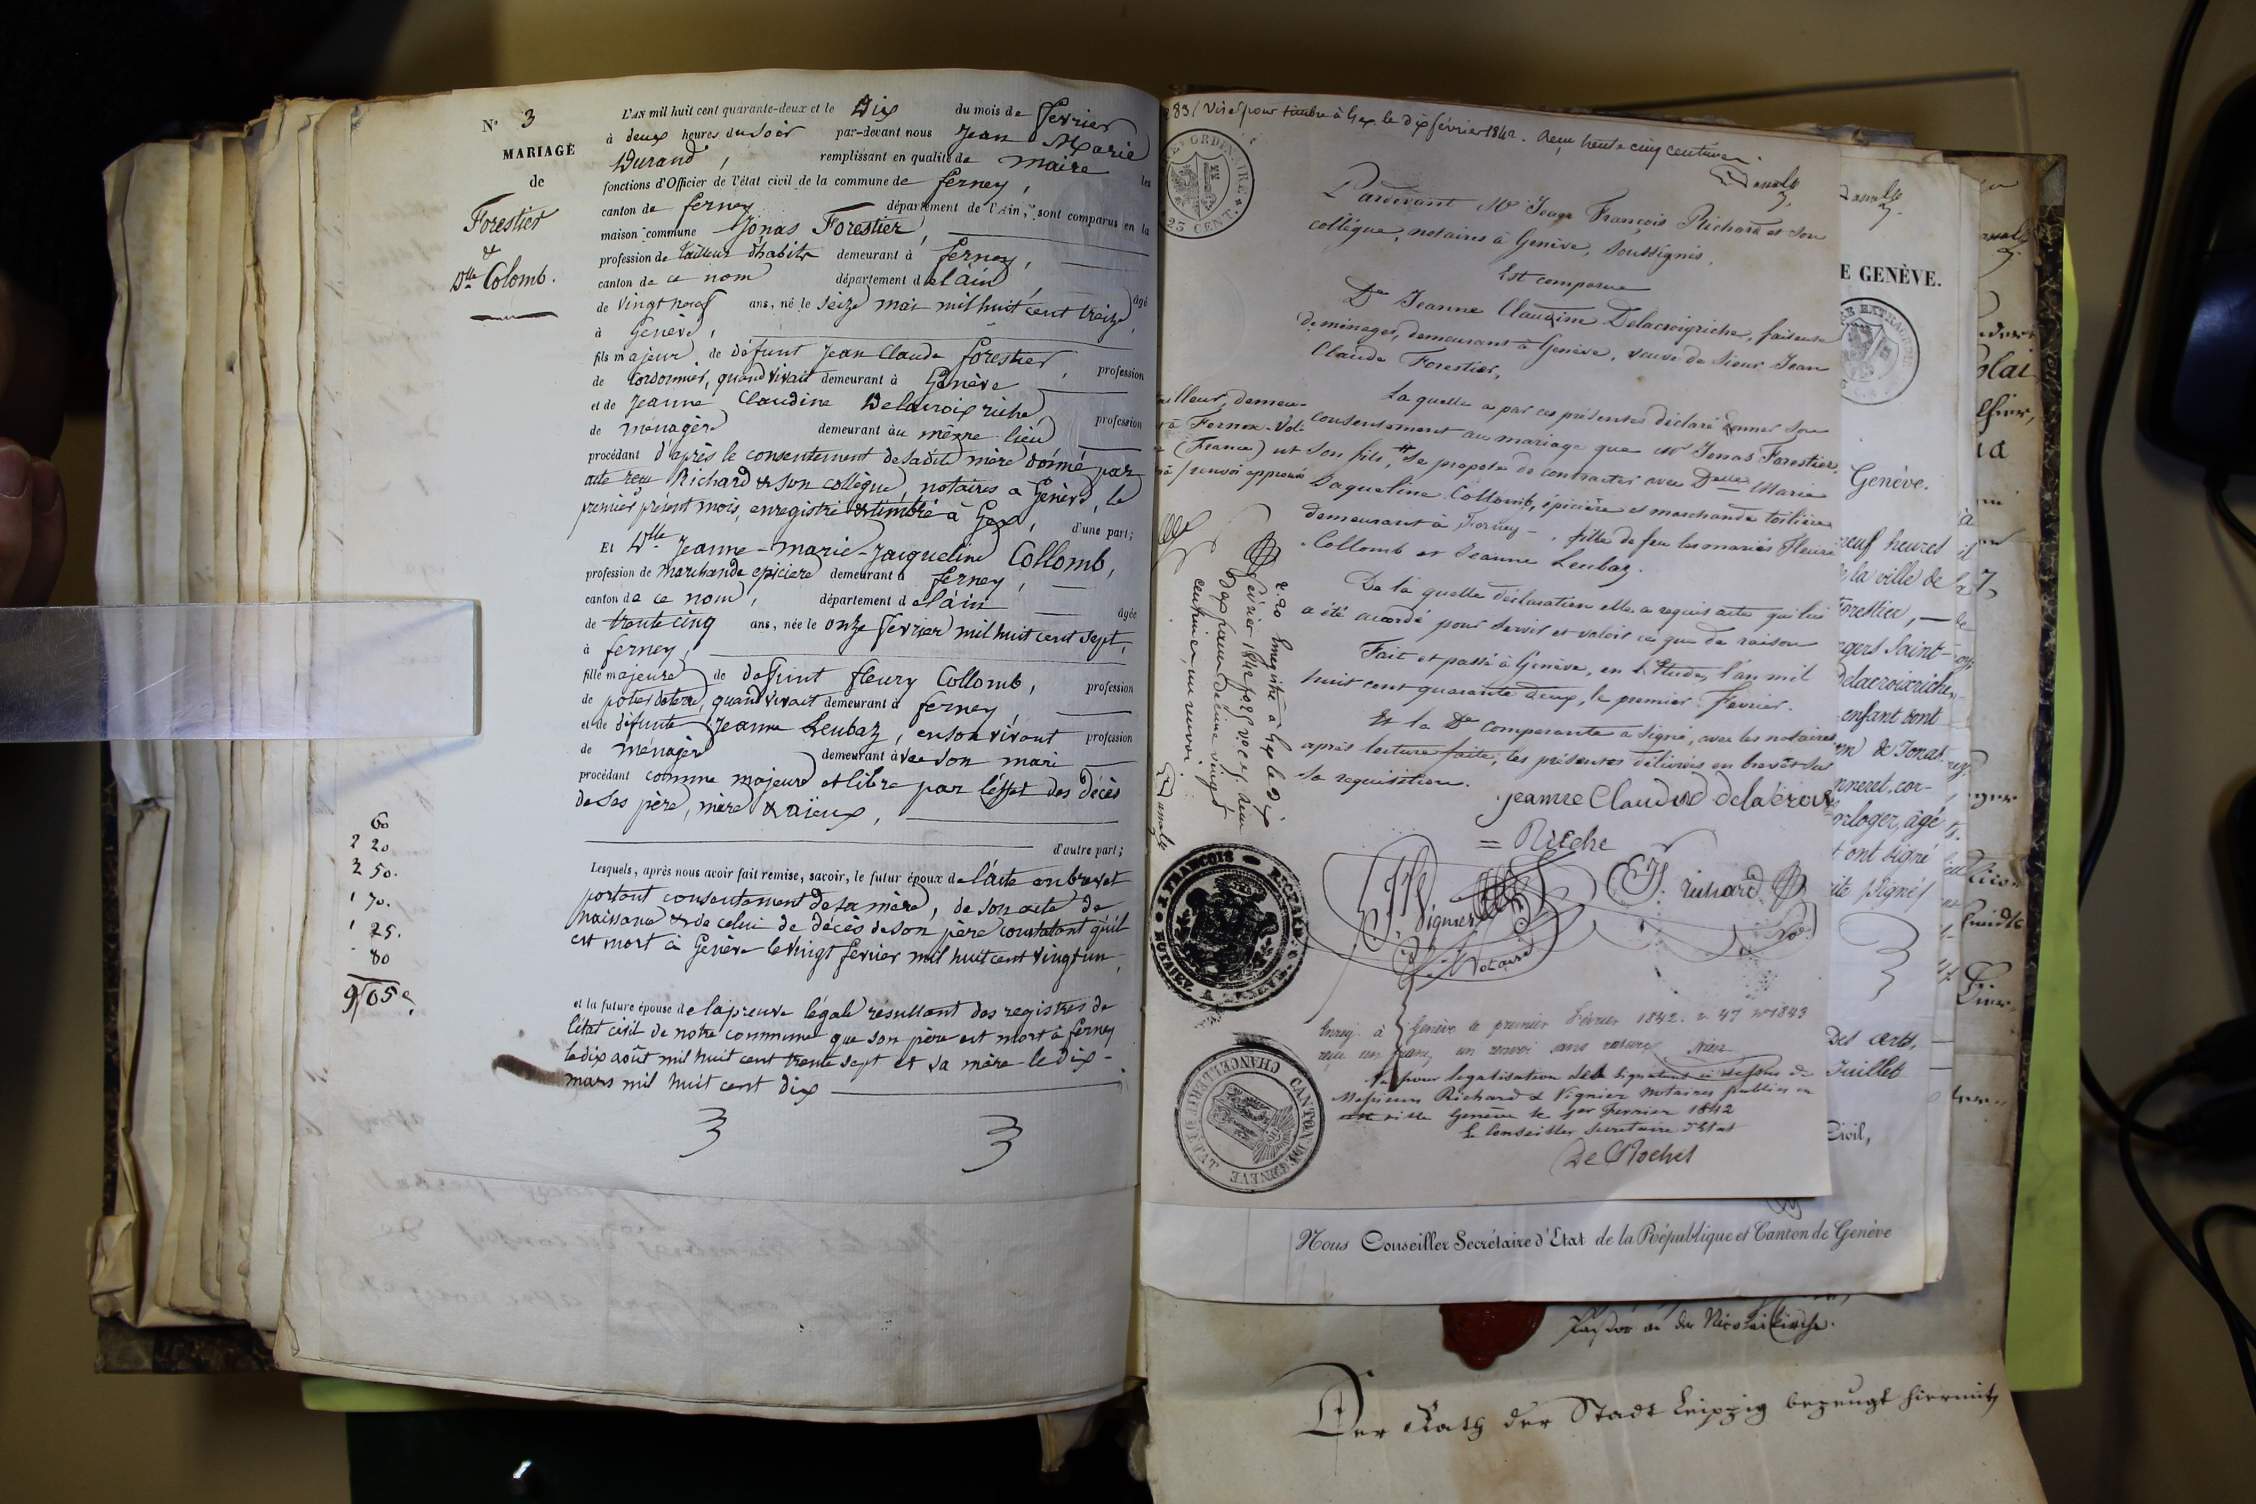 N° 3
MARIAGE
de
Forestier
&
Dlle Colomb.
L'AN mil huit cent quarante-deux et le Dix du mois de fevrier
à deux heures du soir par-devant nous Jean Marie
Durand, remplissant en qualité de maire les
fonctions d'Officier de l'état civil de la commune de ferney,
canton de ferney département de l'Ain, sont comparus en la
maison commune Jonas Forestier,
profession de tailleur d'habits demeurant à ferney,
canton de ce nom département de l'ain, âgé
de vingt neuf ans, né le seize mai mil huit cent treize,
à Genève,
fils majeur de défunt Jean Claude forestier, profession
de cordonnier, quand vivait demeurant à Genève
et de Jeanne Claudine Delacroix riche profession
de menagère demeurant au même lieu
procédant d'après le consentement de sadite mère donné par
acte reçu Richard & son collègue, notaires a Genève, le
premier présent mois, enregistré & timbré à Gex, d'une part;
Et Dlle Jeanne-marie-Jacqueline Collomb,
profession de marchande epiciere demeurant à ferney,
canton de ce nom, département de l'ain âgée
de trente cinq ans, née le onze fevrier mil huit cent sept,
à ferney,
fille majeure de defunt fleury Collomb, profession
de potier de terre, quand vivait demeurant à ferney
et de défunte Jeanne Leubaz, en son vivant profession
de menagère demeurant avec son mari
procédant comme majeure et libre par l'effet des décès
de ses père, mère & aïeux,
d'autre part;
Lesquels, après nous avoir fait remise, savoir, le futur époux de l'acte en brevet
portant consentement de sa mère, de son acte de
naissance & de celui de décès de son père constatant qu'il
est mort à Genève le vingt fevrier mil huit cent vingt un
et la future épouse de la preuve légale résultant des registres de
l'état civil de notre commune que son père est mort à ferney
le dix août mil huit cent trente sept et sa mère le dix-
mars mil huit cent dix
60
2 20
2 50.
1 70.
1 25.
80
9 05
Visé pour timbre à Gex le dix février 1842. Reçu trente cinq centimes.
25 CENT.
Pardevant Me Jean François Richard et son
collègue, notaires à Genève, soussignés.
Est comparue
De Jeanne Claudine Delacroixriche, faiseuse
de ménages, demeurant à Genève, veuve de sieur Jean
Claude Forestier,
La quelle a par ces présentes déclaré donner son
consentement au mariage que Mr Jonas Forestier,
son fils, se propose de contracter avec Delle Marie
Jaqueline Collomb, épicière et marchande toilière
demeurant à Ferney, fille de feu les mariés Fleuri
Collomb et Jeanne Leubaz.
De la quelle déclaration elle a requis acte qui lui
a été accordé pour servir et valoir ce que de raison
Fait et passé à Genève, en l'Etude, l'an mil
huit cent quarante deux, le premier Fevrier.
Et la De comparante a signé, avec les notaires,
après lecture faite, les présentes délivrées en brevet sur
sa requisition.
tailleur, demeu-
à Fernex-Vol-
(France)
renvoi approuvé
jeanne Claudine delacroix
= Rieche
Vignier
Notaire
J. F. Richard
Not.
J. FRANÇOIS RICHARD NOTAIRE A GENEVE
Enreg. à Genève le premier Février 1842.
reçu un franc, un renvoi sans rature
Vu pour legalisation des signatures ci dessus de
Messieurs Richard & Vignier notaires publics en
cette ville Genève le 1er Fevrier 1842
Le Conseiller Secretaire d'Etat
De Roches
CHANCELLERIE D'ETAT CANTON DE GENEVE
E GENÈVE.
Genève.
neuf heures
de la ville de
Forestier,
Delacroixriche,
enfant dont
de Jonas
horloger, âgé
et ont signé
Signés
Des arts,
Juillet
Civil,
Nous Conseiller Secrétaire d'Etat de la République et Canton de Genève
Pastor an der Nicolaikirche.
Der Rath der Stadt Leipzig bezeugt hiermit